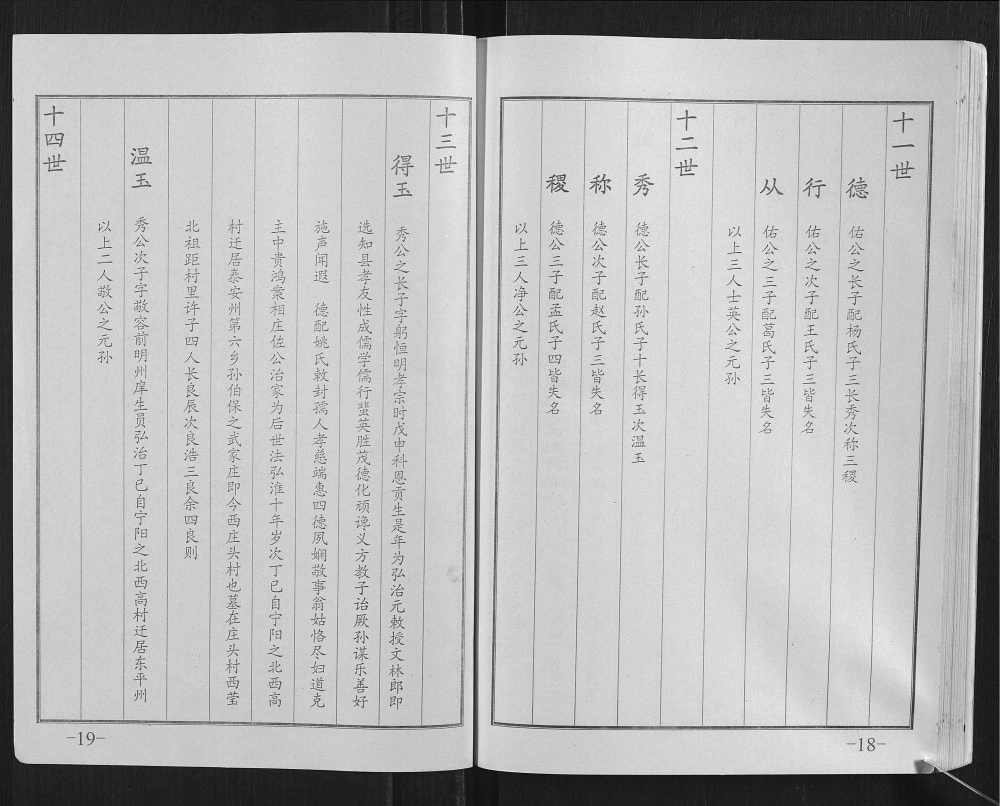 十一世
德
佑公之长子配杨氏子三长秀次称三稷
行
佑公之次子配王氏子三皆失名
从
佑公之三子配葛氏子三皆失名
以上三人士英公之元孙
十二世
秀
德公长子配孙氏子十长得玉次温玉
称
德公次子配赵氏子三皆失名
稷
德公三子配孟氏子四皆失名
以上三人净公之元孙
-18-
十三世
得玉
秀公之长子字躬恒明孝宗时戊申科恩贡生是年为弘治元敕授文林郎即
选知县孝友性成儒学儒行蜚英胜茂德化顽谗义方教子诒厥孙谋乐善好
施声闻遐 德配姚氏敕封孺人孝慈端惠四德夙娴敬事翁姑恪尽妇道克
主中贵鸿案相庄佐公治家为后世法弘淮十年岁次丁巳自宁阳之北西高
村迁居泰安州第六乡孙伯保之武家庄即今西庄头村也墓在庄头村西莹
北祖距村里许子四人长良辰次良浩三良余四良则
十四世
温玉
秀公次子字敬容前明州庠生员弘治丁巳自宁阳之北西高村迁居东平州
以上二人敬公之元孙
-19-